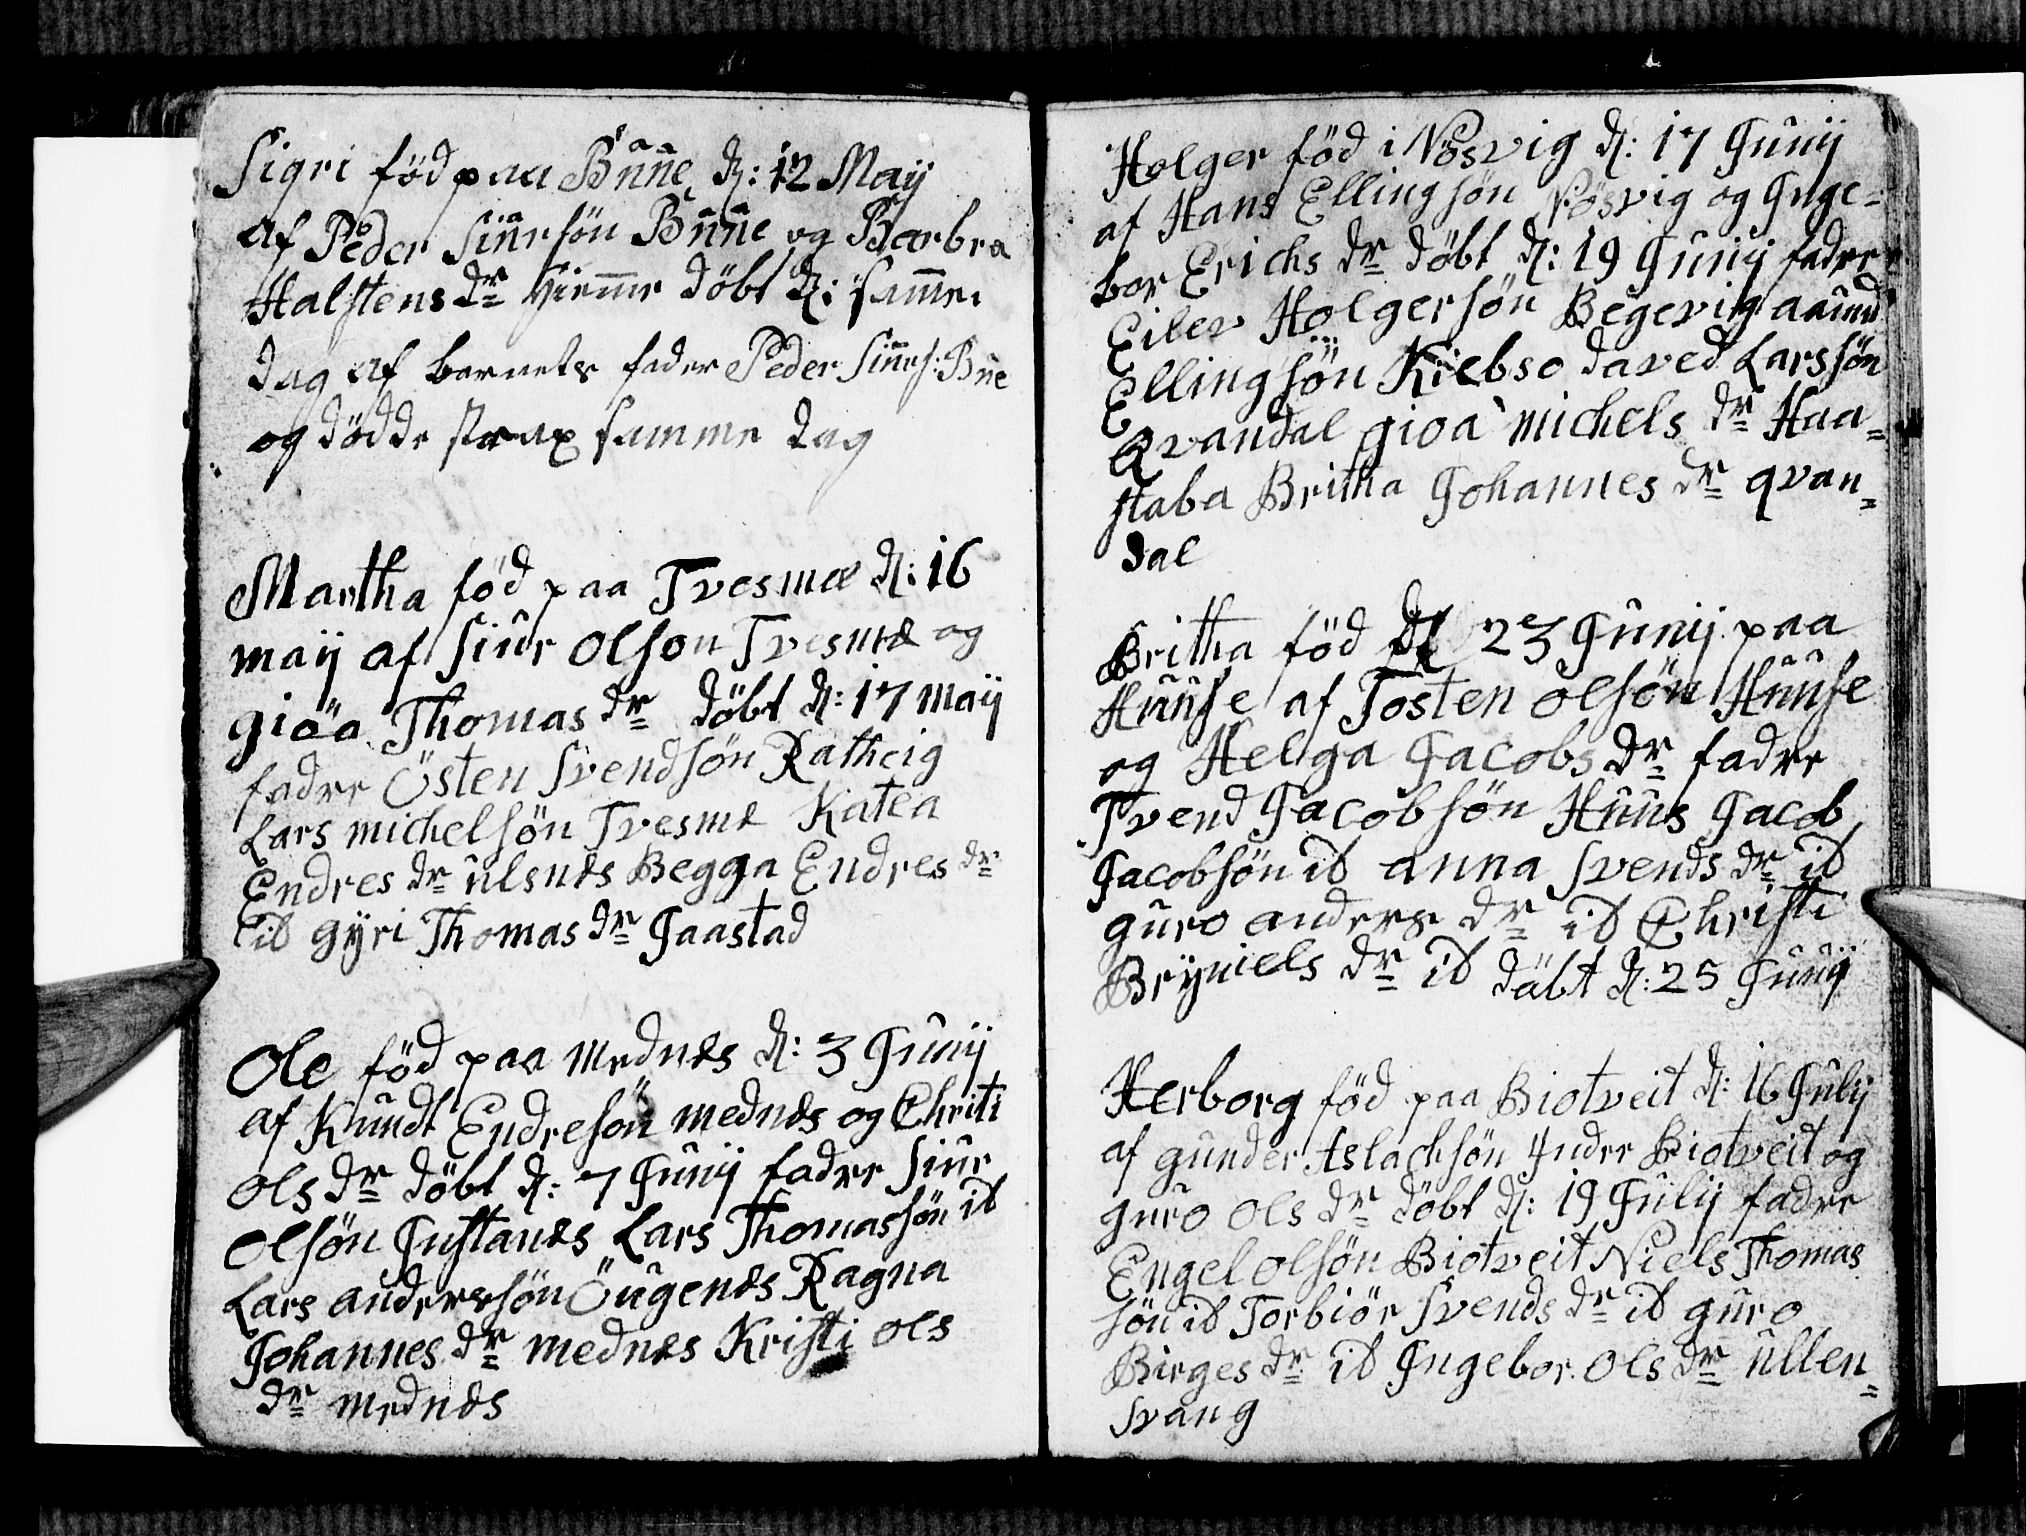 Sigri föd paa Bu̅n̅e d: 12 Maÿ
af Peder Siu̅rsön Bu̅n̅e og Barbra
Halstens dr Hiem̅e döbt d: sam̅e
dag af barnets fader Peder Siurs: Bu̅e
og dödde strax samme dag
Martha föd paa Tvesmæ d: 16
maÿ af Siur Olson Tvesmæ og
gioa Thomas dr döbt d: 17 maÿ
fadre Östen Svendsön Ratheig
Lars michelsön Tvesmæ Katea
Endres dr ulsnes Begga Endres dr
ib gÿri Thomas dr Jaastad
Ole föd paa mednæs d: 3 Junÿ
af Knudt Endresön mednæs og Christi
Ols dr döbt d: 7 Junÿ fadre Siur
Olsön Justanæs Lars Thomassön ib
Lars anderssön Öugenæs Ragna
Johannes dr mednæs Kristi Ols
dr mednæs
Holger föd i Nösvig d: 17 Junÿ
af Hans Ellingsön Nösvig og Inge=
bor Erichs dr döbt d: 19 Junÿ fadre
Eilev Holgersön Begevig aamund
Ellingsön Kiebso daved Larssön
Qvandal gioa michels dr Haa=
staba Britha Johannes dr qvan=
dal
Britha föd d 23 Junÿ paa
Huuse af Tosten olsön Huuse
og Helga Jacobs dr fadre
Svend Jacobsön Huus Jacob
Jacobsön ib anna Svends dr ib
guro anders dr ib Christi
Brÿniels dr ib döbt d: 25 Junÿ
Herborg föd paa Biotveit d: 16 Julÿ
af gunder Aslachsön Indre Biotveit og
guro Ols dr döbt d: 19 Julÿ fadre
Engel olsön Biotveit Niels Thomas
sön ib Torbiör Svends dr ib guro
Birges dr ib Ingebor Ols dr ullen=
svang